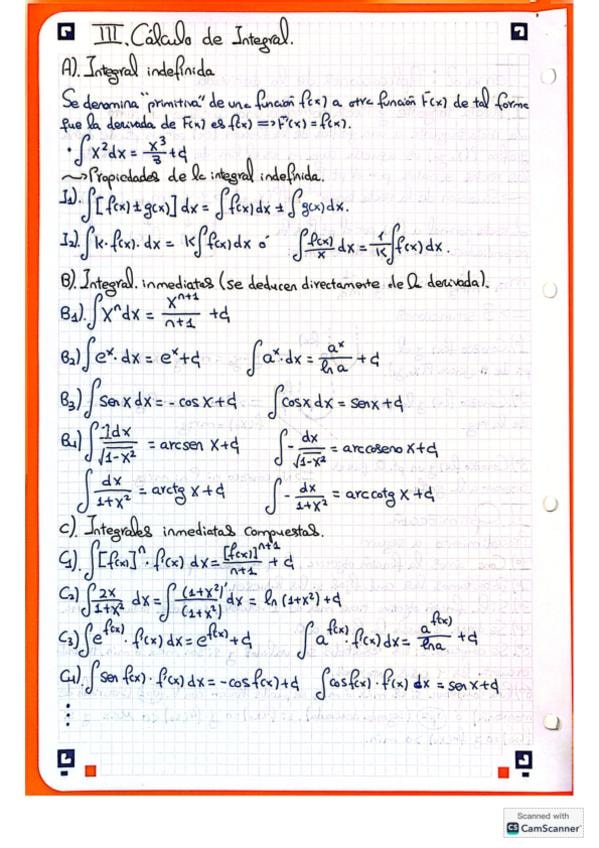 III. Cálculo de Integral.
A). Integral indefinida
Se denomina "primitiva" de una función f(x) a otra función F(x) de tal forma
que la derivada de F(x) es f(x) => F'(x) = f(x).
• ∫x²dx = x³/3 + C
~> Propiedades de la integral indefinida.
I₁). ∫[f(x) ± g(x)] dx = ∫f(x)dx ± ∫g(x)dx.
I₂). ∫K·f(x)·dx = K∫f(x)dx ó ∫f(x)/K dx = 1/K ∫f(x)dx.
B). Integral. inmediatas (se deducen directamente de la derivada).
B₁). ∫xⁿdx = xⁿ⁺¹/n+1 + C
B₂) ∫eˣ·dx = eˣ + C ∫aˣ·dx = aˣ/ln a + C
B₃) ∫sen x dx = - cos x + C ∫cos x dx = sen x + C
B₄) ∫1dx/√1-x² = arcsen x + C ∫- dx/√1-x² = arccoseno x + C
∫dx/1+x² = arctg x + C ∫- dx/1+x² = arccotg x + C
C). Integrales inmediatas compuestas.
C₁). ∫[f(x)]ⁿ·f'(x) dx = [f(x)]ⁿ⁺¹/n+1 + C
C₂) ∫2x/1+x² dx = ∫(1+x²)'/(1+x²) dx = ln (1+x²) + C
C₃) ∫e^f(x)·f'(x) dx = e^f(x) + C ∫a^f(x)·f'(x) dx = a^f(x)/ln a + C
C₄). ∫sen f(x)·f'(x) dx = -cos f(x) + C ∫cos f(x)·f'(x) dx = sen x + C
Scanned with
CS CamScanner